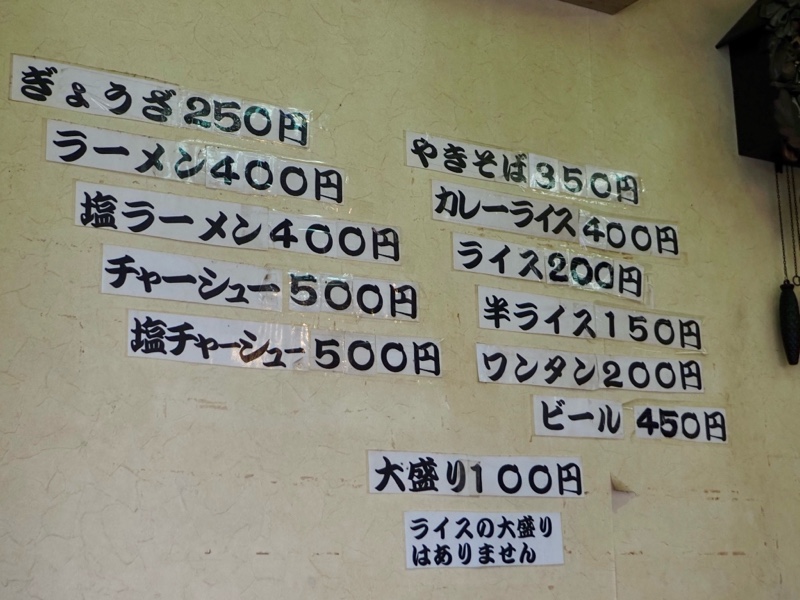 ぎょうざ250円
ラーメン400円
塩ラーメン400円
チャーシュー500円
塩チャーシュー500円
やきそば350円
カレーライス400円
ライス200円
半ライス150円
ワンタン200円
ビール 450円
大盛り100円
ライスの大盛り
はありません